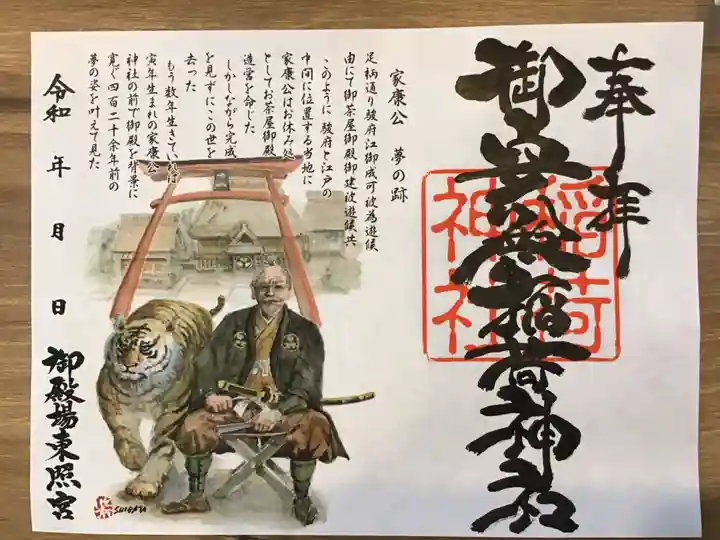 奉拝
稲荷
神社
家康公 夢の跡
足柄通り駿府江御成可被為遊候
由にて御茶屋御殿御建被遊候共
このように駿府と江戸の
中間に位置する当地に
家康公はお休み処
としてお茶屋御殿
造営を命じた
しかしながら完成
を見ずにこの世を
去った
もう数年生きていれば
寅年生まれの家康公
神社の前で御殿を背景に
寛ぐ四百二十余年前の
夢の姿を叶えて見た
令和 年 月 日
御殿場東照宮
SHIGERU